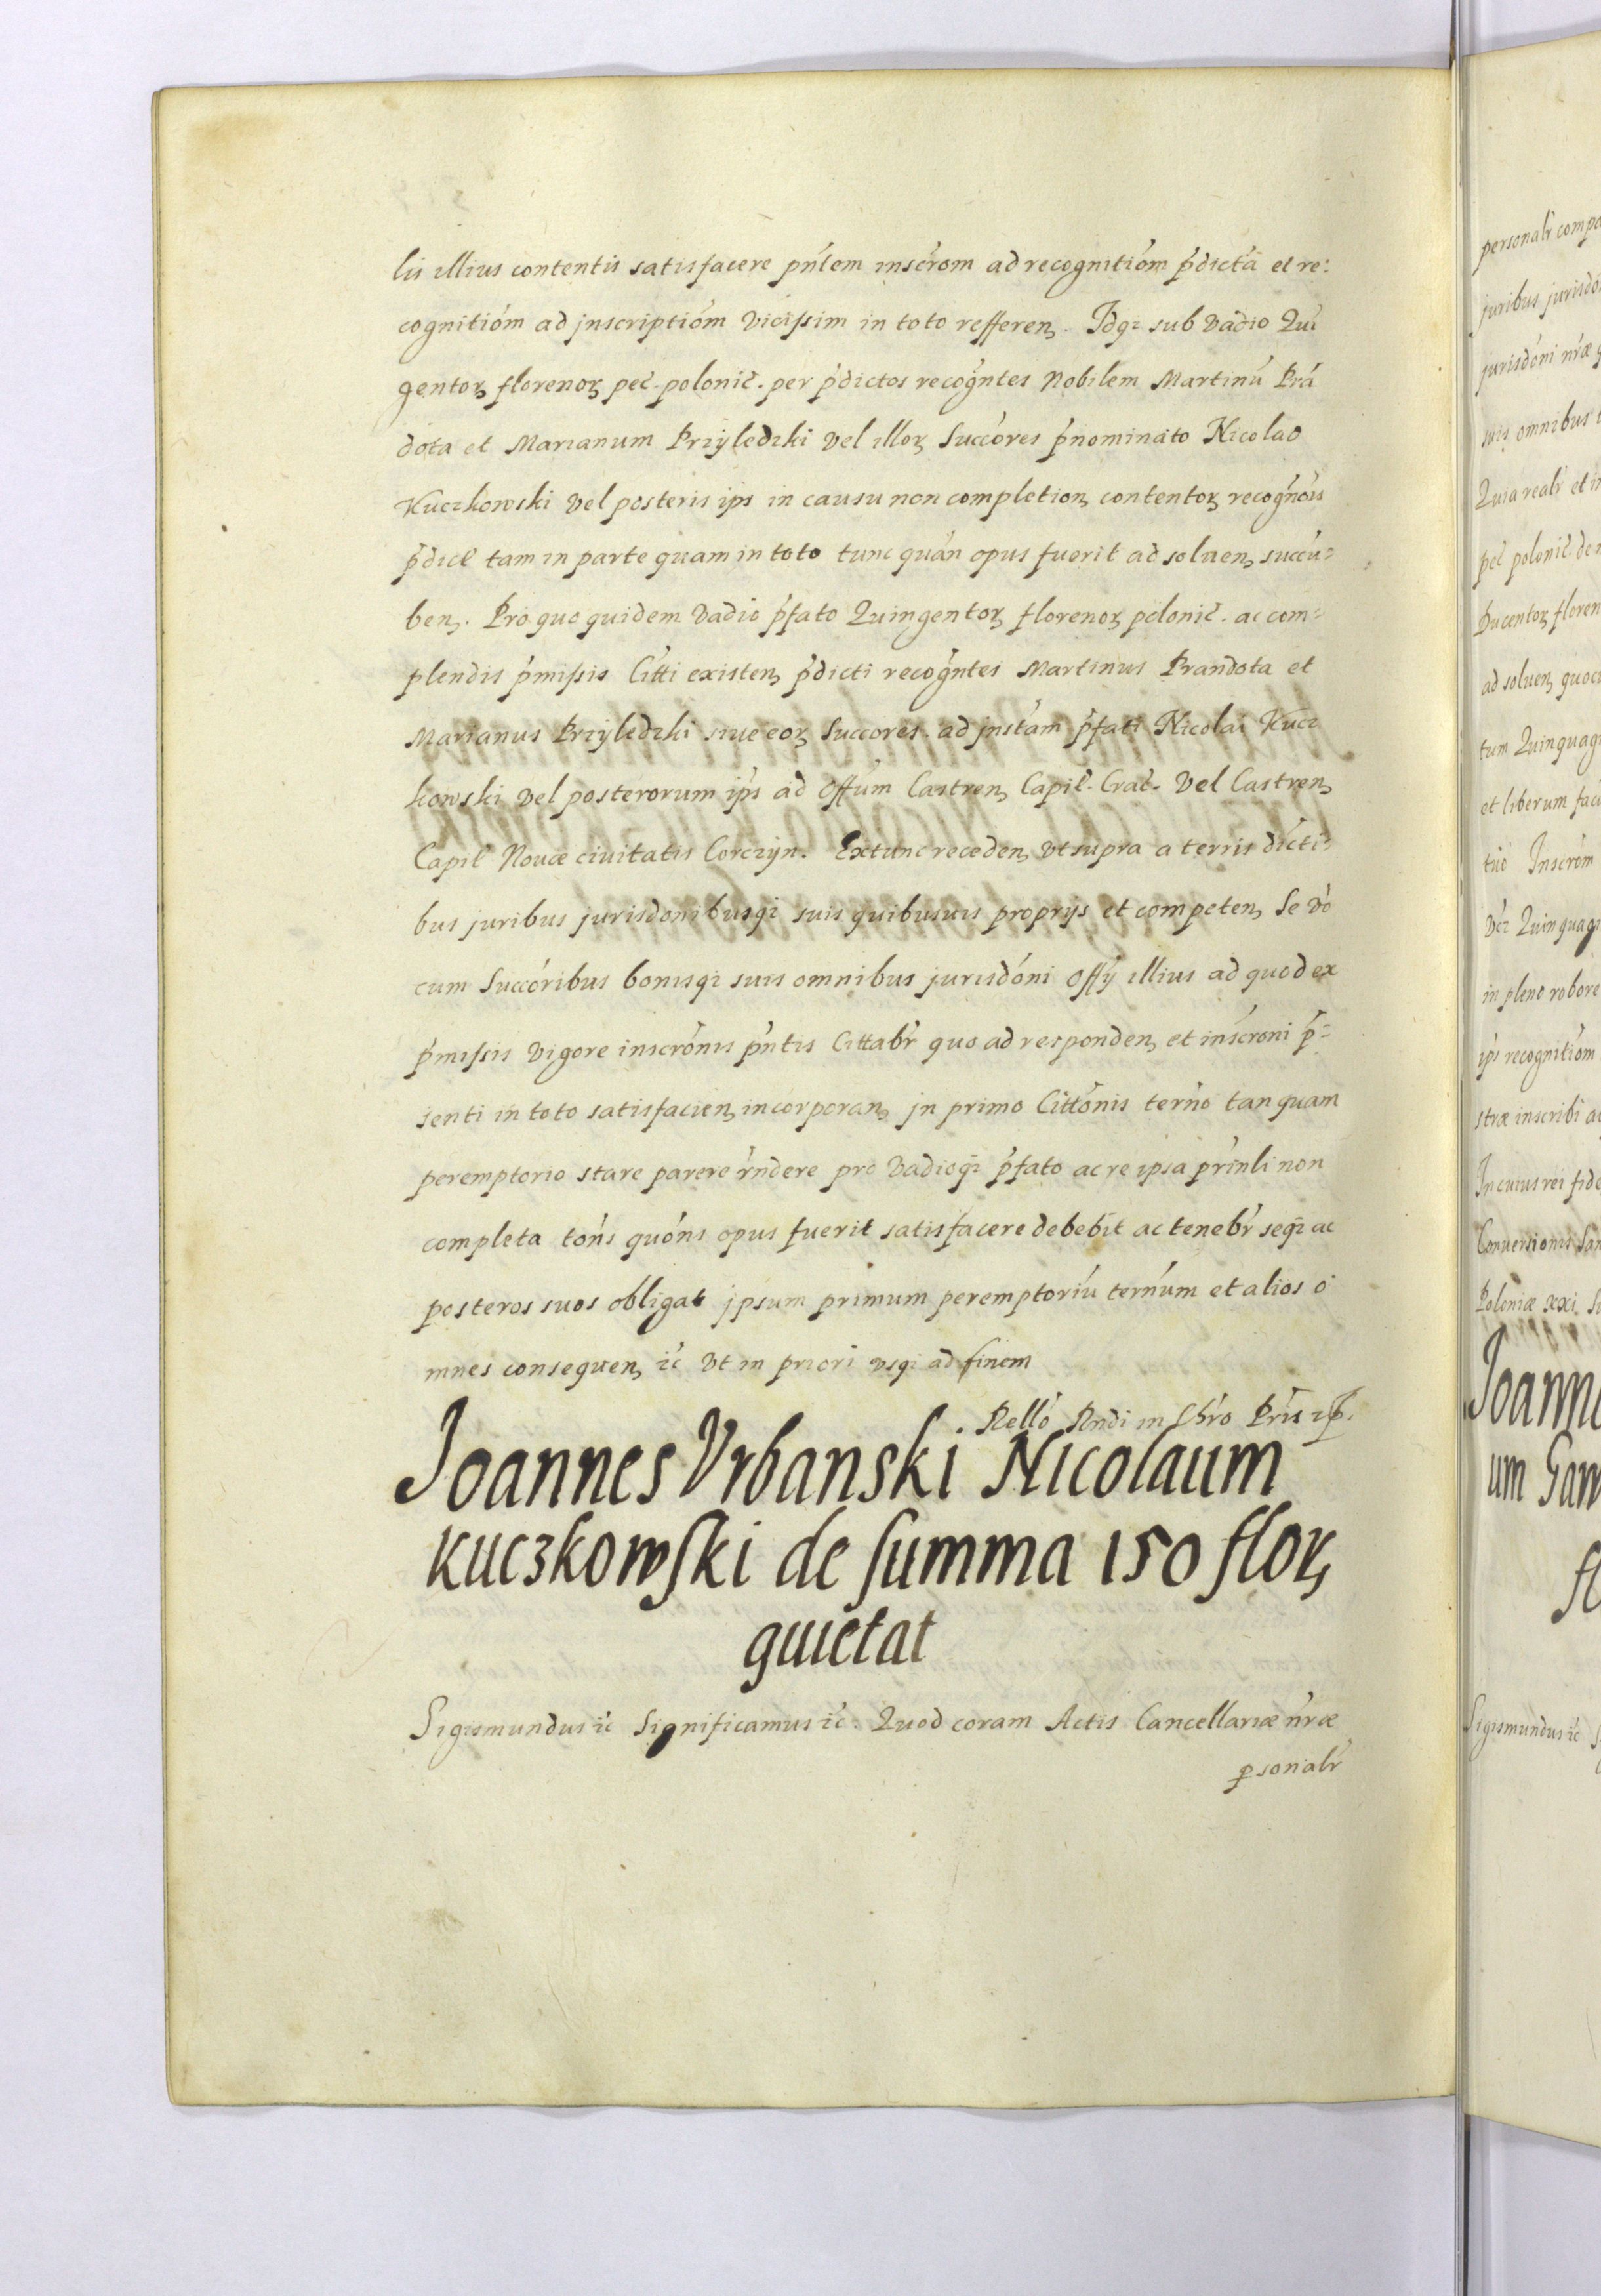 lis illius contentis satisfacere pñtem inscr̃om ad recognitióm p̃dictã et re:
cognitióm ad jnscriptióm vicissim in toto refferenꝫ. Idqꝫ sub vadio Qui
gentoꝝ florenoꝝ pec̃. polonic̃. per p̃dictos recogñtes Nobilem Martinũ Prã
dota et Marianum Przÿledzki vel illoꝝ Succores p̃nominato Nicolao
Kuczkowski vel posteris ip̃s in causu non completionꝫ contentoꝝ recogñois
p̃dict̃ tam in parte quam in toto tunc quãn opus fuerit ad soluenꝫ succu-
benꝫ. Pro quo quidem vadio p̃fato Quingentoꝝ florenoꝝ polonic̃. ac com-
plendis p̃missis Citti existenꝫ p̃dicti recogñtes Martinus Prandota et
Marianus Przÿledzki siue eoꝝ Succores. ad jnstãm p̃fati Nicolai Kucz
kowski vel posterorum ip̃s ad Offũm Castrenꝫ Capit̃. Crac̃. vel Castrenꝫ
Capit̃ Nouæ ciuitatis Corczÿn. Extunc recedenꝫ vt supra a terris dicti
bus juribus jurisdonibusqꝫ suis quibusuis proprÿs et competenꝫ Se vo
cum Succóribus bonisqꝫ suis omnibus jurisdóni Offÿ illius ad quod ex
p̃missis vigore inscrõnis p̃ntis Cittabr̃ quo ad respondenꝫ et inscroni p̃-
senti in toto satisfacienꝫ incorporanꝫ jn primo Cittõnis terño tanquam
peremptorio stare parere r̃ndere pro vadioqꝫ p̃fato ac re ipsa prinli non
completa tońs quońs opus fuerit satisfacere debebit ac tenebr̃ seqꝫ ac
posteros suos obligat jpsum primum peremptoriũ terñum et alios o
mnes consequenꝫ ꝛc̃ vt in priori vsqꝫ ad finem
Rello Rndi in Chr̃o Pr̃is ꝛꝑ.
Joannes Vrbanski Nicolaum
Kuczkowski de summa 150 floꝝ
quietat
Sigismundus ꝛc̃ Significamus ꝛc̃. Quod coram Actis Cancellariæ nr̃æ
ꝑsonalr̃
personalr̃
juribus
jurisdóni nr̃æ
suis omnibus
Quia realr̃ et
pec̃ polonic̃.
Ducentoꝝ
ad soluenꝫ
tum
et liberum
Inscrõm
in pleno robore
ip̃s recognitióm
stræ inscribi
In cuius rei
Conuersionis
Poloniæ xxi.
um
Sigismundus ꝛc̃